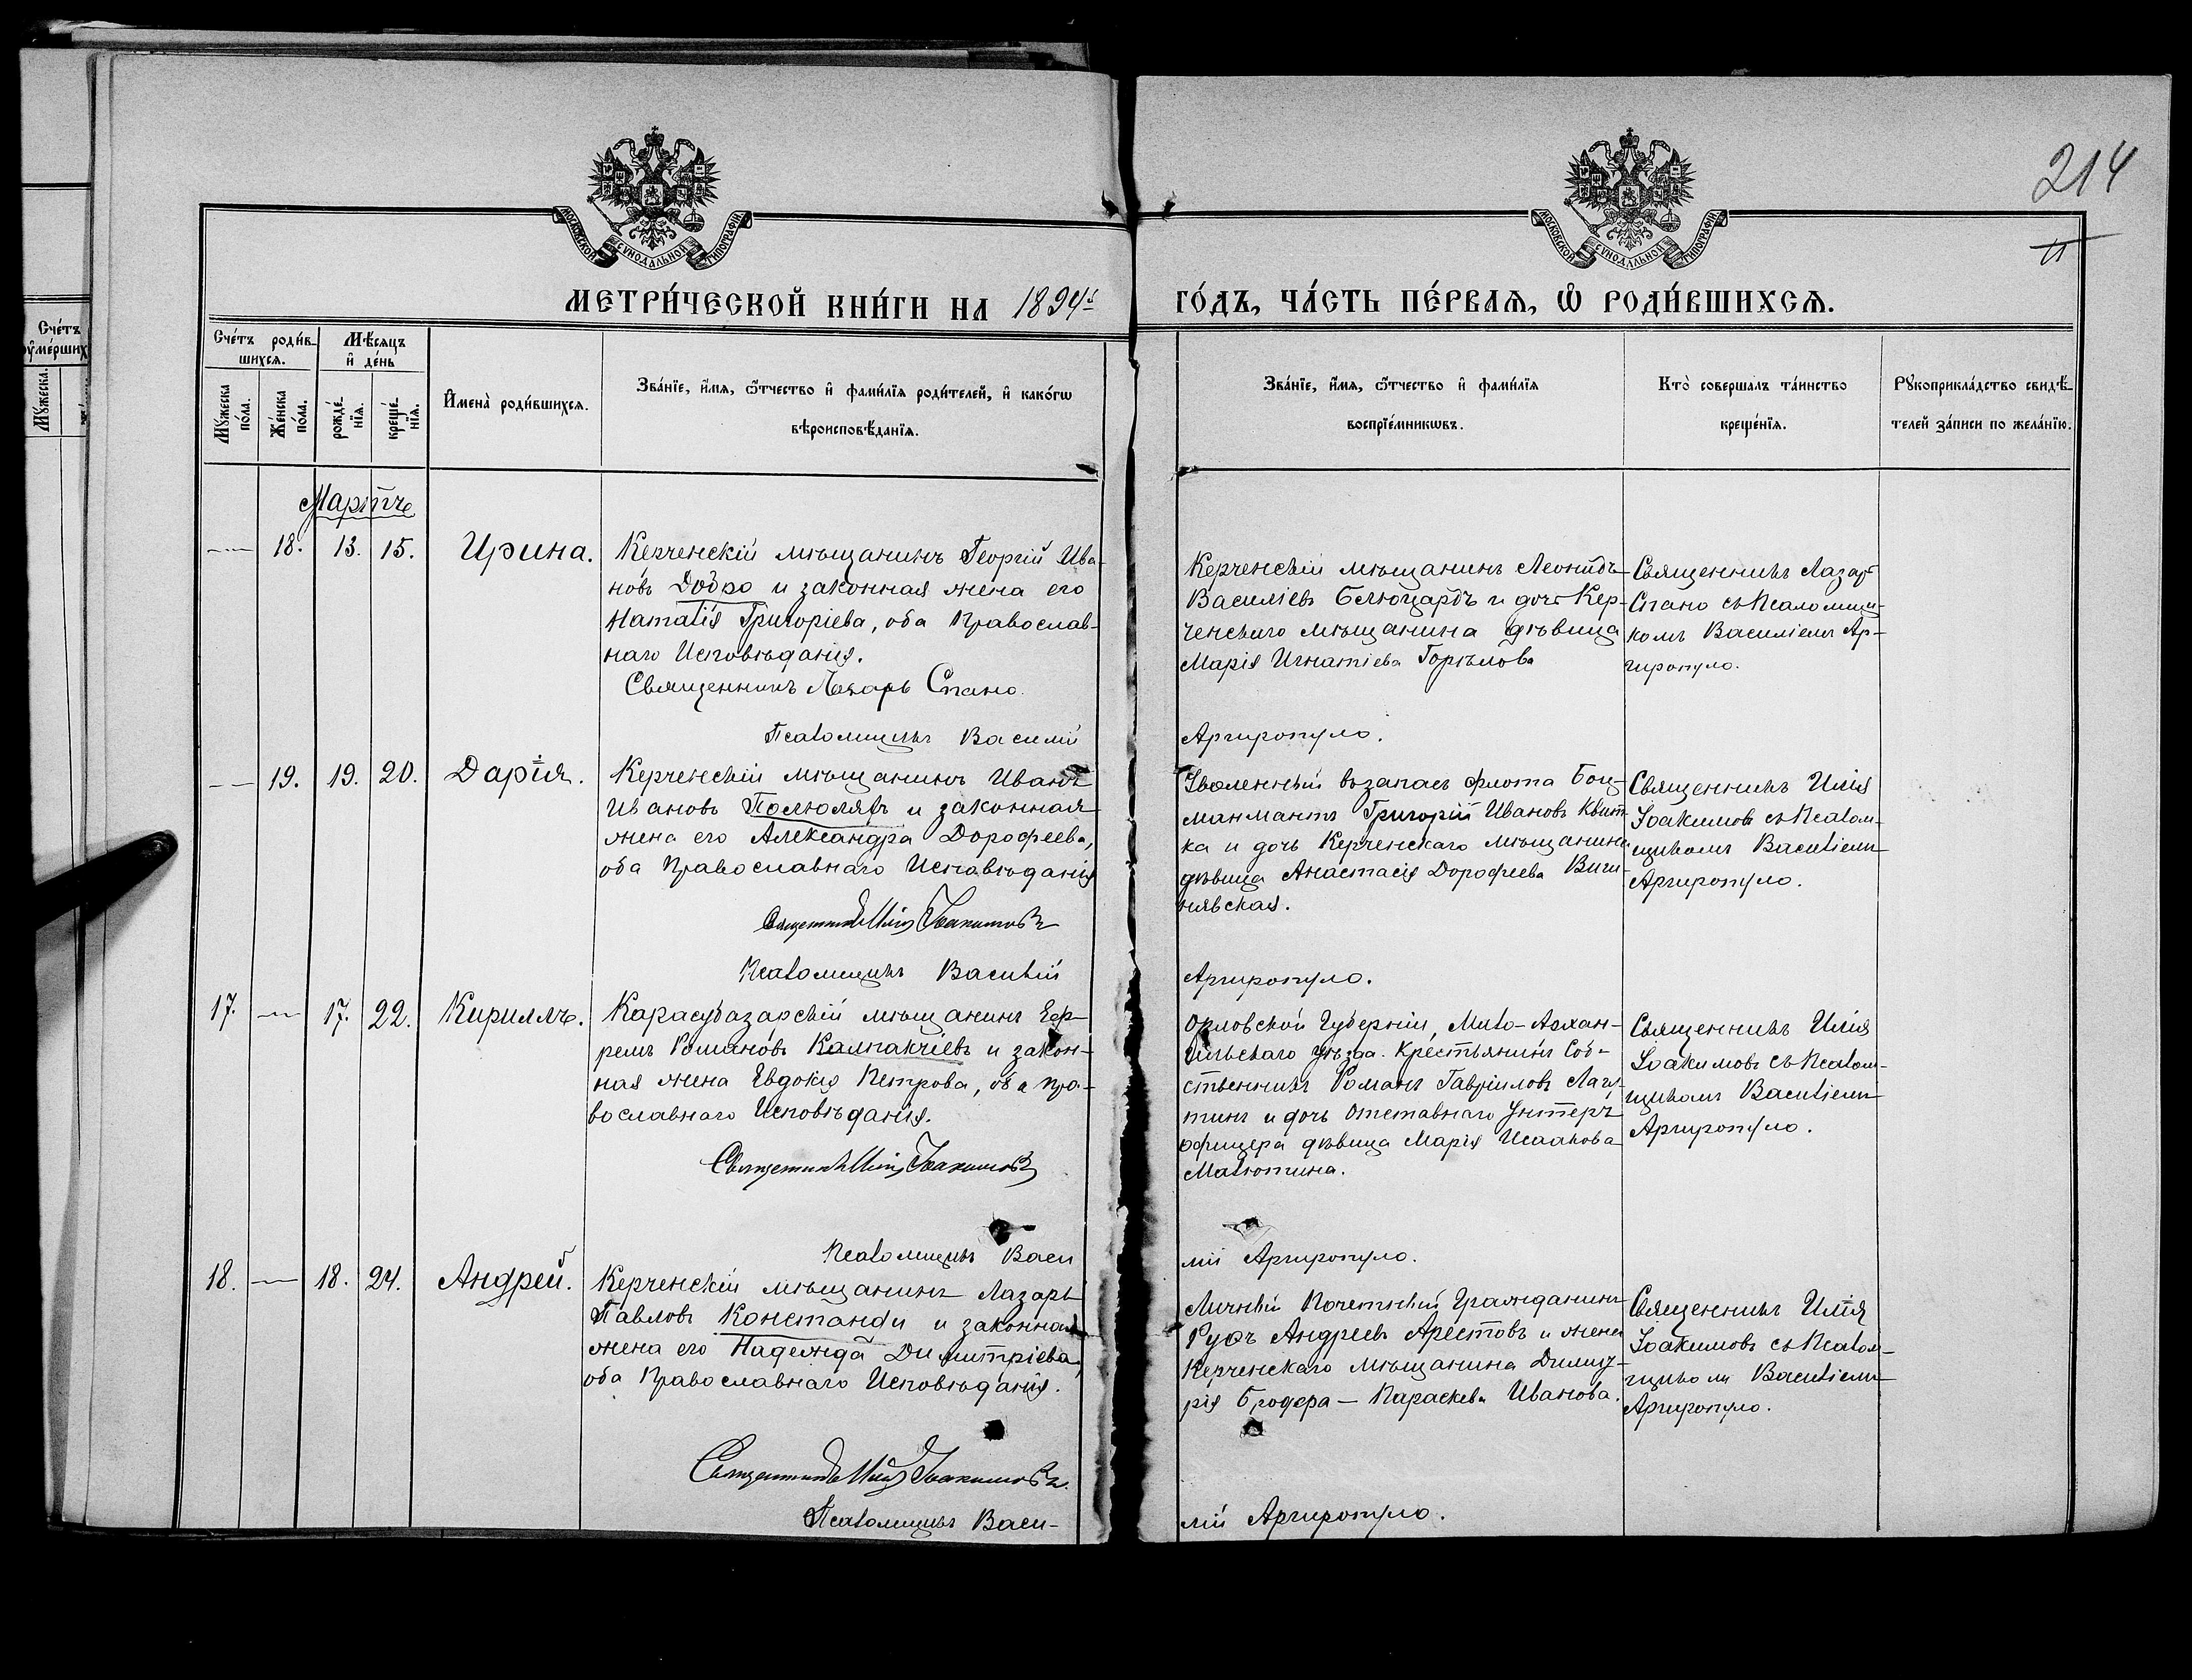 214
11
МОСКОВСКОЙ СУНОДАЛЬНОЙ ТИПОГРАФІИ
МОСКОВСКОЙ СУНОДАЛЬНОЙ ТИПОГРАФІИ
МЕТРИ́ЧЕСКОЙ КНИ́ГИ НА 1894й ГО́ДЪ, ЧА́СТЬ ПЕ́РВАЯ, Ѽ РОДИ́ВШИХСЯ.
Сче́тъ
ᲂу҆ме́рших
Мꙋжеска.
Сче́тъ роди́в-
шихся.
Мѣ́сяцъ
и҆ де́нь
Мꙋжеска
по́ла.
Же́нска
по́ла.
рожде́-
нїя.
креще́-
нїя.
И҆мена̀ роди́вшихся.
Зва́нїе, и҆́мя, ѻ҆́тчество и҆ фами́лїя роди́телей, и҆ како́гѡ
вѣроисповѣ́данїя.
Зва́нїе, и҆́мя, ѻ҆́тчество и҆ фами́лїя
воспрїе́мникѡвъ.
Кто̀ соверша́лъ та́инство
креще́нїя.
Рꙋкоприкла́дство свидѣ́-
телей за́писи по жела́нїю.
Мартъ
— 18. 13. 15. Ирина.
Керченскій мѣщанинъ Георгій Ива-
новъ Добро и законная жена его
Наталія Григоріева, оба Православ-
наго Исповѣданія.
Священникъ Лазарь Спано.
Псаломщикъ Василій
Керченскій мѣщанинъ Леонидъ
Василіевъ и дочь Кер-
ченскаго мѣщанина дѣвица
Марія Игнатіева Горѣлова
Аргиропуло.
Священникъ Лазарь
Спано съ Псаломщи-
комъ Василіемъ Ар-
гиропуло.
— 19. 19. 20. Дарія.
Керченскій мѣщанинъ Иванъ
Ивановъ и законная
жена его Александра Дорофеева,
оба Православнаго Исповѣданія
Священникъ Илія Іоакимовъ
Псаломщикъ Василій
Уволенный въ запасъ флота Боц-
манматъ Григорій Ивановъ Квит-
ка и дочь Керченскаго мѣщанина
дѣвица Анастасія Дорофеева
Аргиропуло.
Священникъ Илія
Іоакимовъ съ Псалом-
щикомъ Василіемъ
Аргиропуло.
17. — 17. 22. Кириллъ.
Карасубазарскій мѣщанинъ Еф-
ремъ Романовъ Калпакчіевъ и закон-
ная жена Евдокія Петрова, оба Пра-
вославнаго Исповѣданія.
Священникъ Илія Іоакимовъ
Псаломщикъ Васи
Орловской Губерніи, Мало-Архан-
гельскаго уѣзда. Крестьянинъ Соб-
ственникъ Романъ Гавріиловъ
и дочь Отставнаго Унтеръ
офицера дѣвица Марія Исаакова
Малютина.
лій Аргиропуло.
Священникъ Илія
Іоакимовъ съ Псалом-
щикомъ Василіемъ
Аргиропуло.
18. — 18. 24. Андрей.
Керченскій мѣщанинъ Лазарь
Павловъ Констанди и законная
жена его Надежда Димитріева,
оба Православнаго Исповѣданія.
Священникъ Илія Іоакимовъ.
Псаломщикъ Васи-
Личный Почетный Гражданинъ
Руфъ Андреевъ Арестовъ и жена
Керченскаго мѣщанина Димит-
рія — Параскева Иванова.
лій Аргиропуло.
Священникъ Илія
Іоакимовъ съ Псалом-
щикомъ Василіемъ
Аргиропуло.